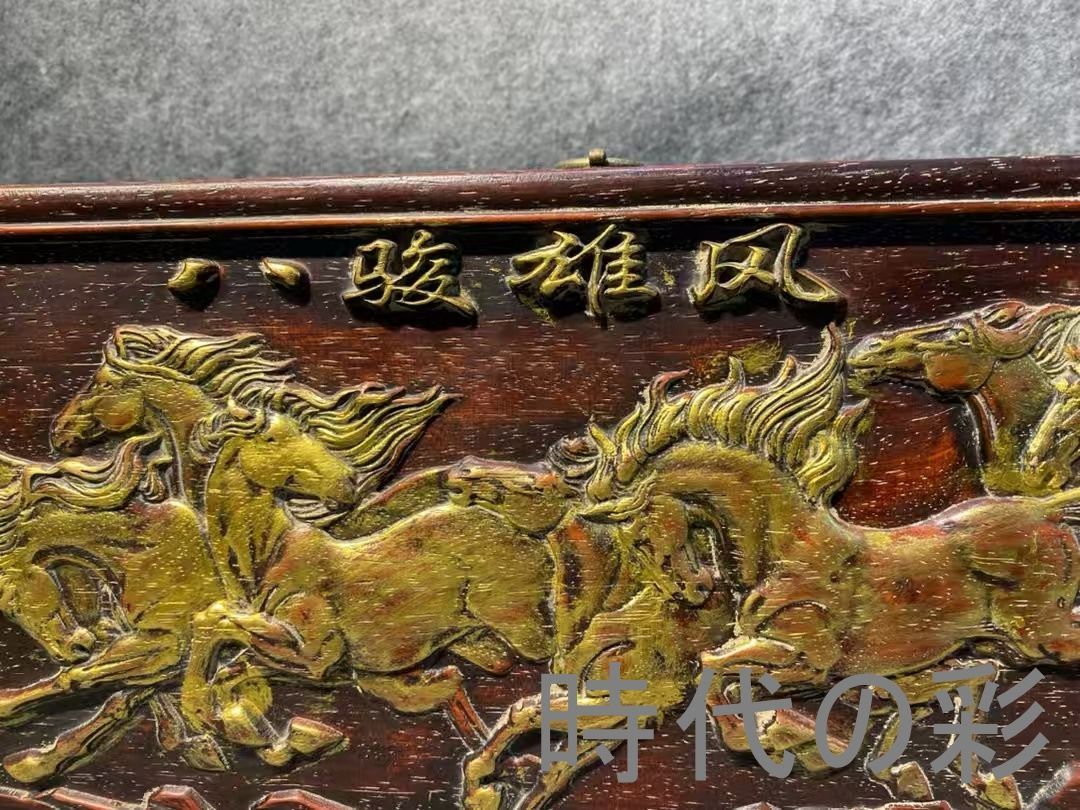 八骏雄风
時代の彩